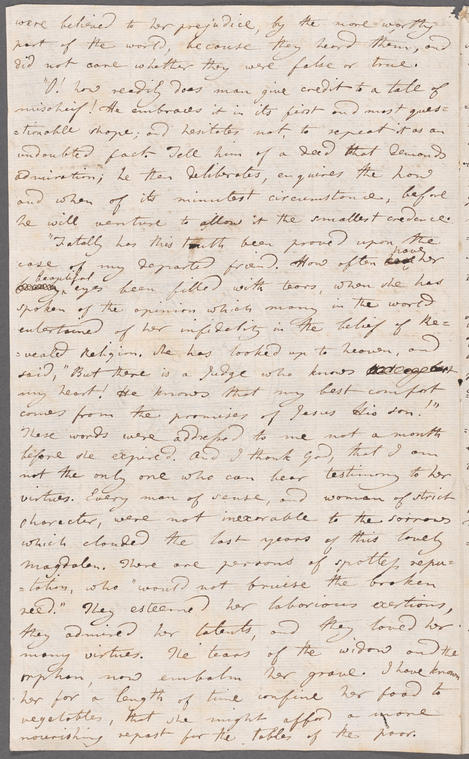 were believed to her prejudice, by the more worthy
part of the world, because they heard them, and
did not care whether they were false or true.
"O! how readily does man give credit to a tale of
mischief! He embraces it in its first and most ques=
=tionable shape; and hesitates not, to repeat it as an
undoubted fact. Tell him of a deed that demands
admiration; he then deliberates, enquires the how
and when of its minutest circumstance, before
he will venture to allow it the smallest credence.
"Fatally has this truth been proved upon the
case of my departed friend. How often have her
beautiful eyes been filled with tears, when she has
spoken of the opinion which many in the world
entertained of her infidelity in the belief of Re=
=vealed Religion. She has looked up to heaven, and
said, "But there is a Judge who knows
my heart! He knows that my best comfort
comes from the promises of Jesus his son!"
These words were addressed to me not a month
before she expired. And I thank God, that I am
not the only one who can bear testimony to her
virtues. Every man of sense, and woman of strict
character, were not inexorable to the sorrows
which clouded the last years of this lovely
magdalen. There are persons of spotless repu=
=tation, who "would not bruise the broken
reed." They esteemed her laborious exertions,
they admired her talents, and they loved her
many virtues. The tears of the widow and the
orphan, now embalm her grave. I have known
her for a length of time confine her food to
vegetables, that she might afford a more
nourishing repast for the tables of the poor.